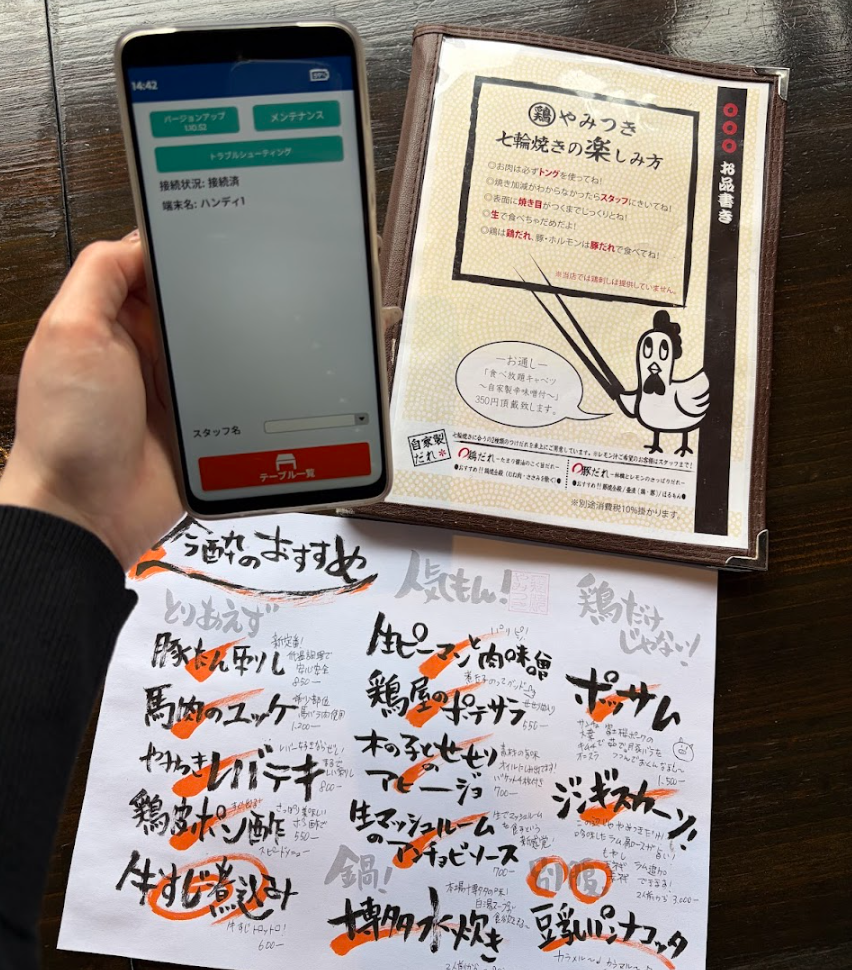 14:42
バージョンアップ
メンテナンス
トラブルシューティング
接続状況: 接続済
端末名: ハンディ1
スタッフ名
テーブル一覧
鶏 やみつき
七輪焼きの楽しみ方
◎お肉は必ずトングを使ってね!
◎焼き加減がわからなかったらスタッフにきいてね!
◎表面に焼き目がつくまでじっくりとね!
◎生で食べちゃだめだよ!
◎鶏は鶏だれ、豚・ホルモンは豚だれで食べてね!
※当店では鶏刺しは提供していません。
お品書き
―お通し―
「食べ放題キャベツ
~自家製辛味噌付~」
350円頂戴致します。
自家製
だれ
鶏だれ
豚だれ
※別途消費税10%掛かります。
今酔のおすすめ
とりあえず
豚たん刺し
新定番!
低温調理で
安心安全
850―
馬肉のユッケ
1,200―
やみつきレバテキ
800―
鶏皮ポン酢
さっぱり美味しい
550―
スピードメニュー
牛すじ煮込み
牛すじトロットロ!
600―
人気もん!
生ピーマンと肉味噌
パリピ!
鶏屋のポテサラ
550―
木の子とせせりの
アヒージョ
700―
生マッシュルーム
のアンチョビソース
生でマッシュルーム
を食すという
新感覚!
700―
鍋!
博多水炊き
本場博多の味!
鶏だけ
じゃない!
ポッサム
1,500―
ジンギスカーン!
2人前から 3,000―
豆乳パンナコッタ